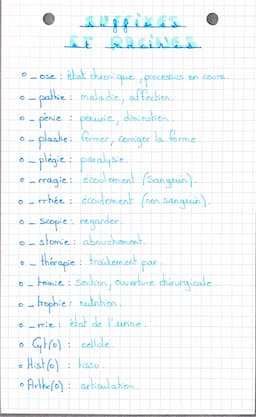 SUFFIXES
ET RACINES
_ ose : état chronique, processus en cours.
_ pathie : maladie, affection.
_ pénie : pénurie, diminution.
_ plastie : former, corriger la forme.
_ plégie : paralysie.
_ rragie : écoulement (sanguin).
_ rrhée : écoulement (non sanguin).
_ scopie : regarder.
_ stomie : abouchement.
_ thérapie : traitement par
_ tomie : section, ouverture chirurgicale.
_ trophie : nutrition.
_ rrie : état de l'urine.
Cyt(o) : cellule.
Hist(o) : tissu.
Arthr(o) : articulation.